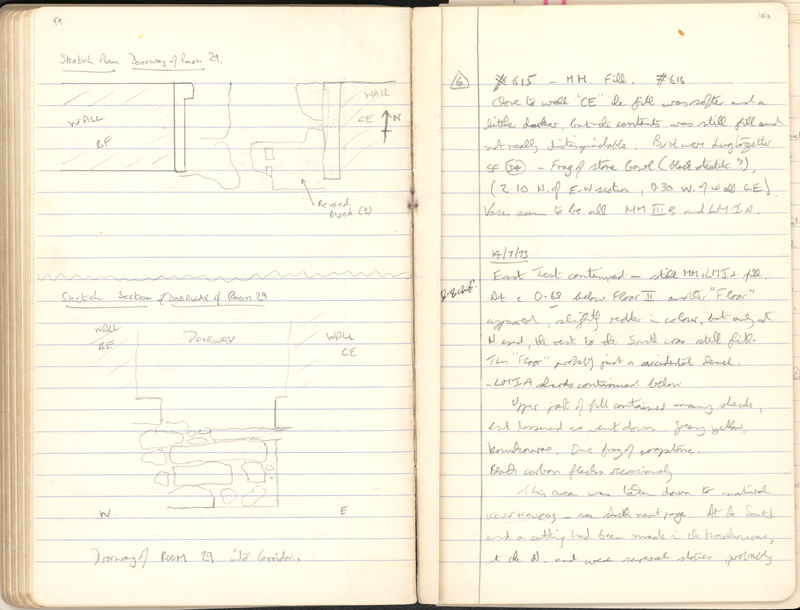 99
Sketch Plan Doorway of Room 29.
WALL
BE
WALL
CE
N
Reused
Block (?)
Sketch Section of DOORWAY of Room 29
WALL
BE
DOORWAY
WALL
CE
W
E
Doorway of ROOM 29 into Corridor.
6
#615 - MM. Fill. #616
Close to wall "CE" the fill was softer and a
little darker, but the contents was still fill and
not really distinguishable. Both were dug together
SF 34 - Frag of stone bowl (black steatite?),
(2.10 N. of E-W section, 0.30 W. of Wall CE).
Vases seem to be all MM III B and LM IA.
14/7/73
East Test continued - still MM/LM IA fill.
At c 0.68 below Floor II another "Floor"
appeared, slightly redder in colour, but only at
N. end, the rest to the South was still fill.
This "Floor" probably just a accidental level.
- LM IA sherds continued below
Upper part of fill contained many sherds,
but lessened as went down. Greeny yellow,
kouskouras. One frag of soapstone.
Black carbon flecks occasionally
This area was taken down to natural
kouskouras - see sketch next page. At the South
end a cutting had been made in the kouskouras,
at the N. end were several stones probably